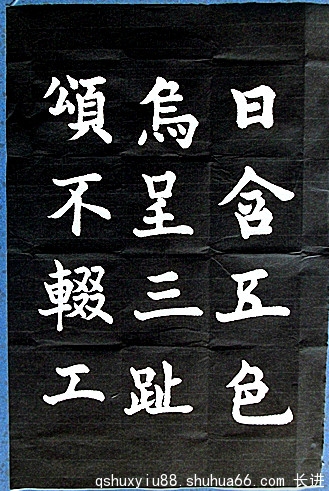 日含五色
烏呈三趾
頌不輟工
qshuxyiu88.shuhua66.com 长进